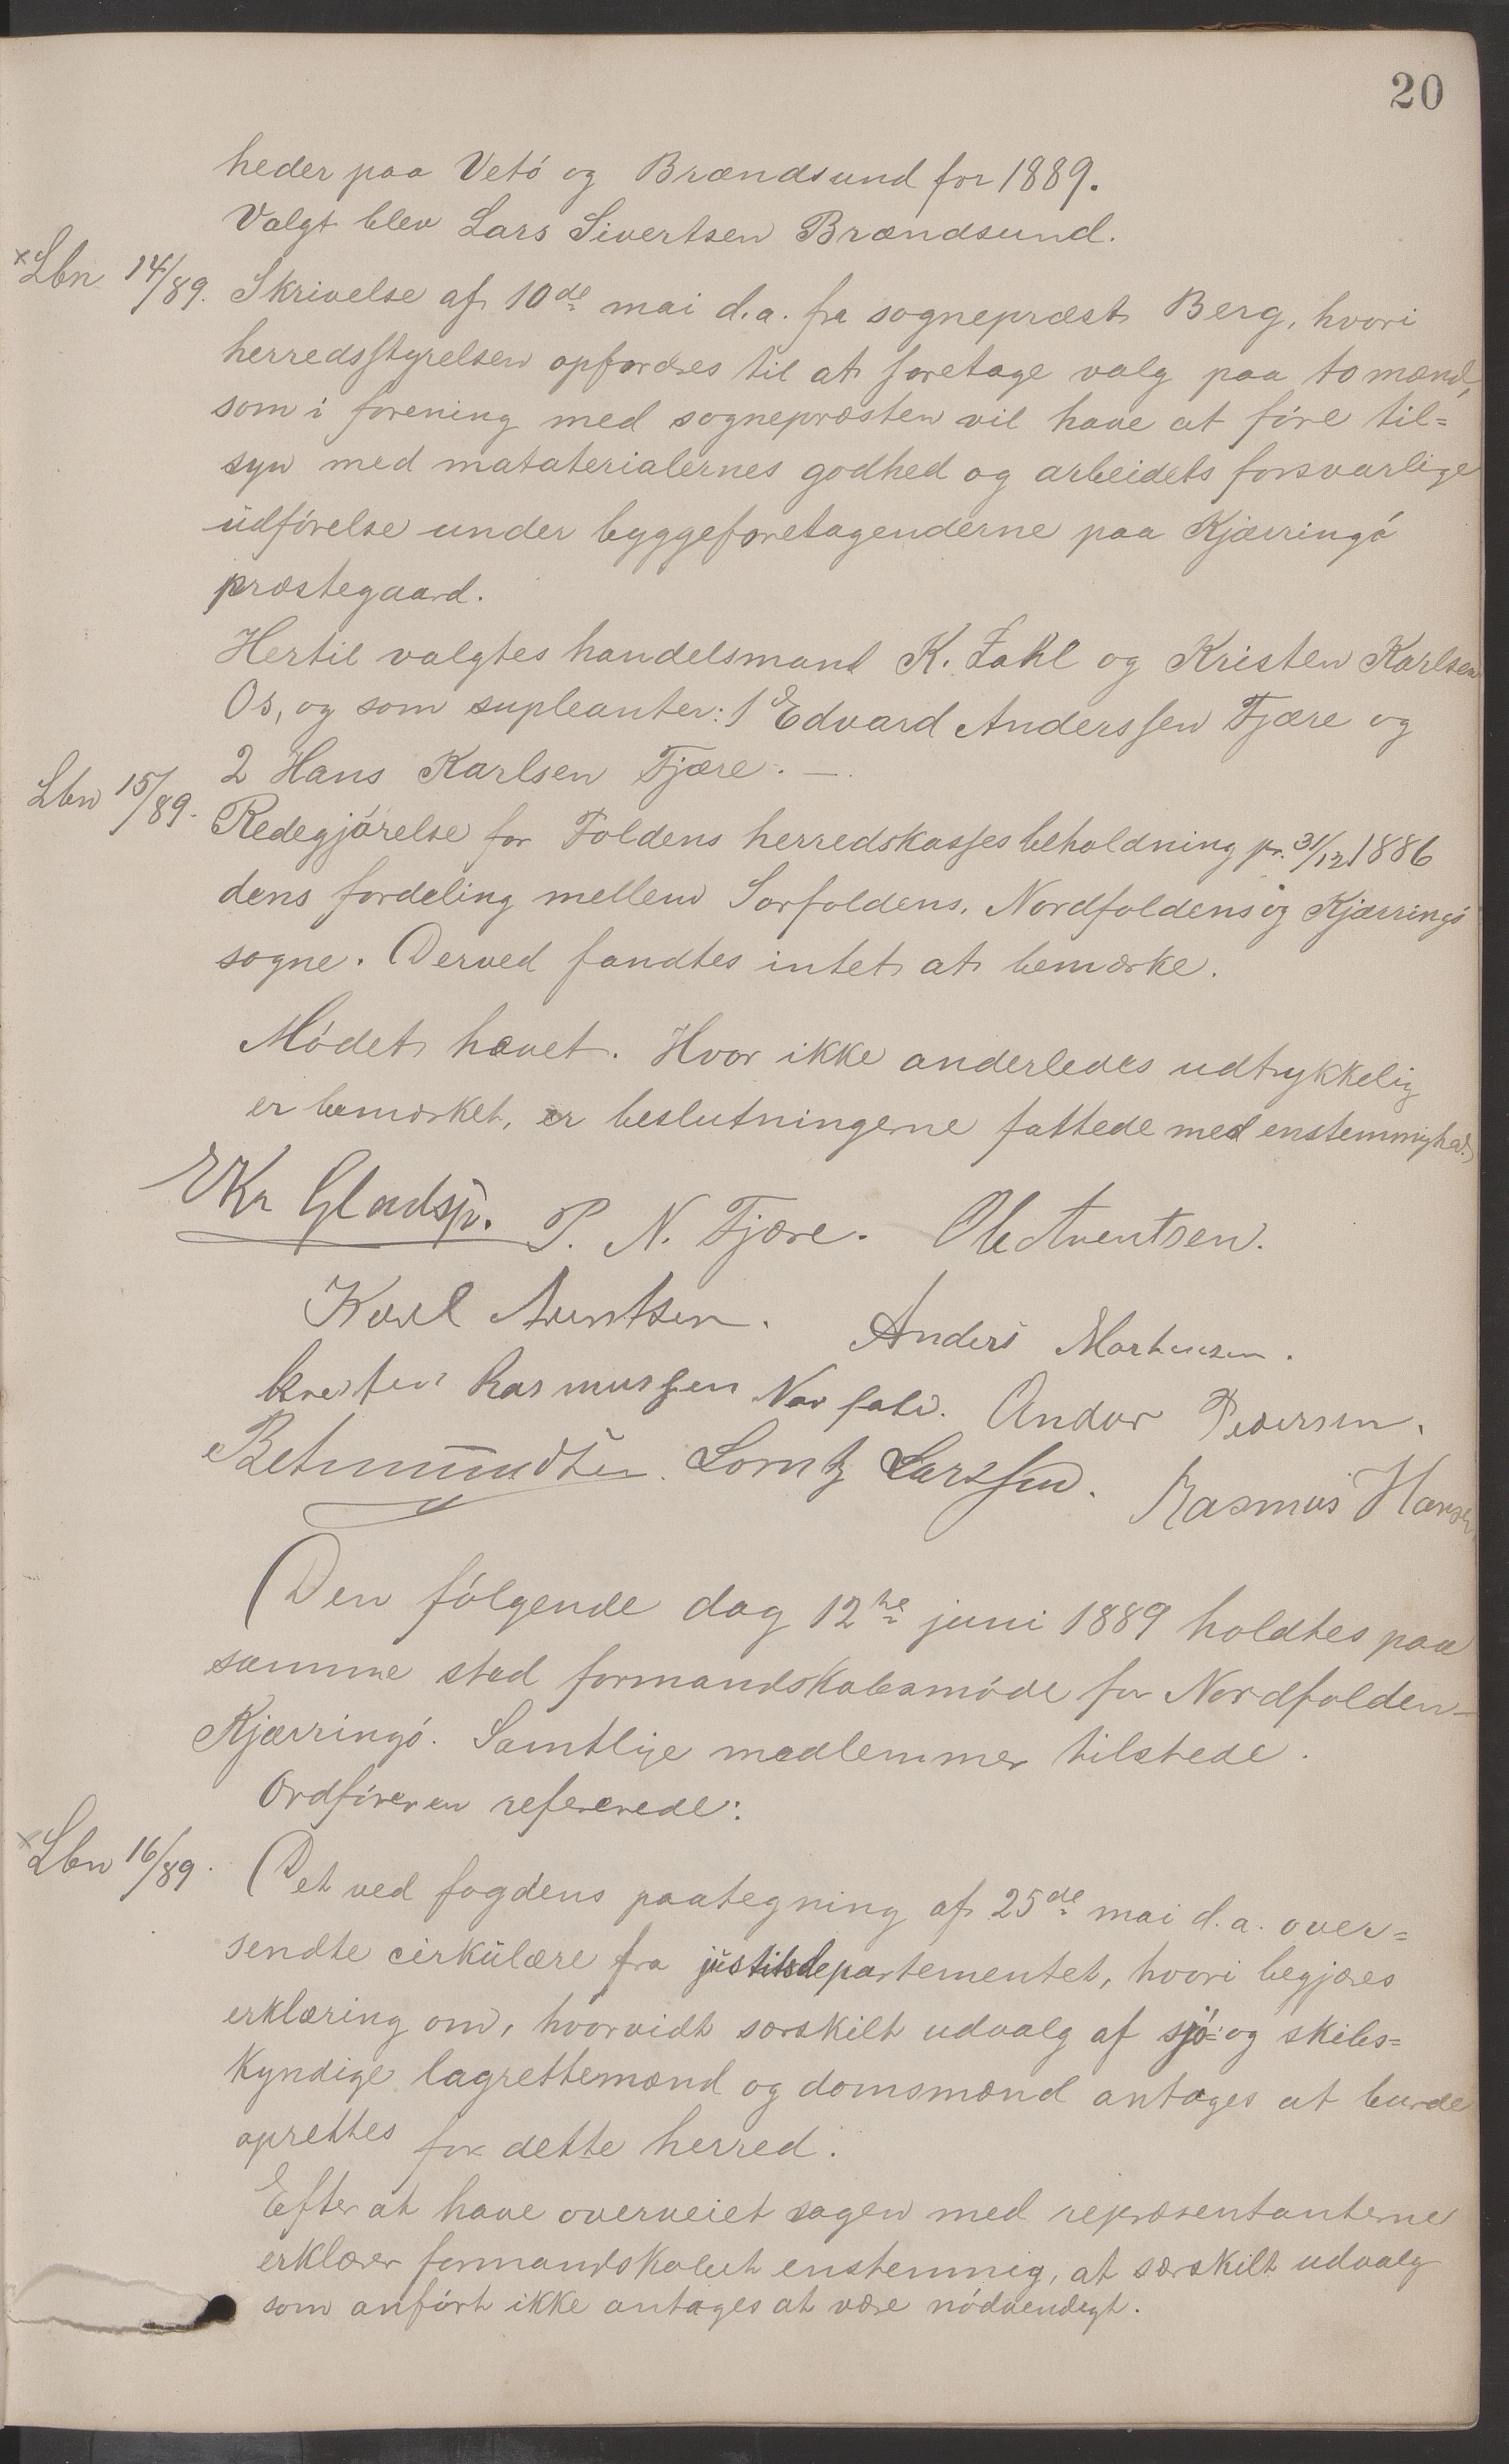 20
heder paa Vetó og Brændsund for 1889.
Valgt blev Lars Sivertsen Brændsund.
×Lbn 14/89. Skrivelse af 10de mai d.a. fra sognepræst Berg, hvori
herredsstyrelsen opfordres til at foretage valg paa to mænd,
som i forening med sognepræsten vil have at fóre til=
syn med mataterialernes godhed og arbeidets forsvarlige
udfórelse under byggeforetagenderne paa Kjærringó
præstegaard.
Hertil valgtes handelsmand K. Zahl og Kristen Karlsen
Os, og som supleanter: 1 Edvard Anderssen Fjære og
2 Hans Karlsen Fjære. —.
Lbn 15/89. Redegjórelse for Foldens herredskasses beholdning pr. 31/12 1886
dens fordeling mellem Sorfoldens, Nordfoldens og Kjærringó
sogne. Derved fandtes intet at bemærke.
Módet hævet. Hvor ikke anderledes udtrykkelig
er bemærket, er beslutningerne fattede med enstemmighed.
EKr Gladsjó. P. N. Fjære. Ole Arentsen.
Karl Arentsen. Anders Mortensen.
Kresten Rasmussen Andor Pedersen.
Lorntz Larssen. Rasmus Hansen
Den fólgende dag 12te juni 1889 holdtes paa
samme sted formandskabsmóde for Nordfolden-
Kjærringó. Samtlige medlemmer tilstede.
Ordfóreren refererede:
×Lbn 16/89. Det ved fogdens paategning af 25de mai d.a. over=
sendte cirkulære fra justitsdepartementet, hvori begjæres
erklæring om, hvorvidt særskilt udvalg af sjó= og skibs=
kyndige lagrettemænd og domsmænd antages at burde
oprettes for dette herred.
Efter at have overveiet sagen med repræsentanterne
erklærer formandskabet enstemmig, at særskilt udvalg
som anfórt ikke antages at være nódvendigt.